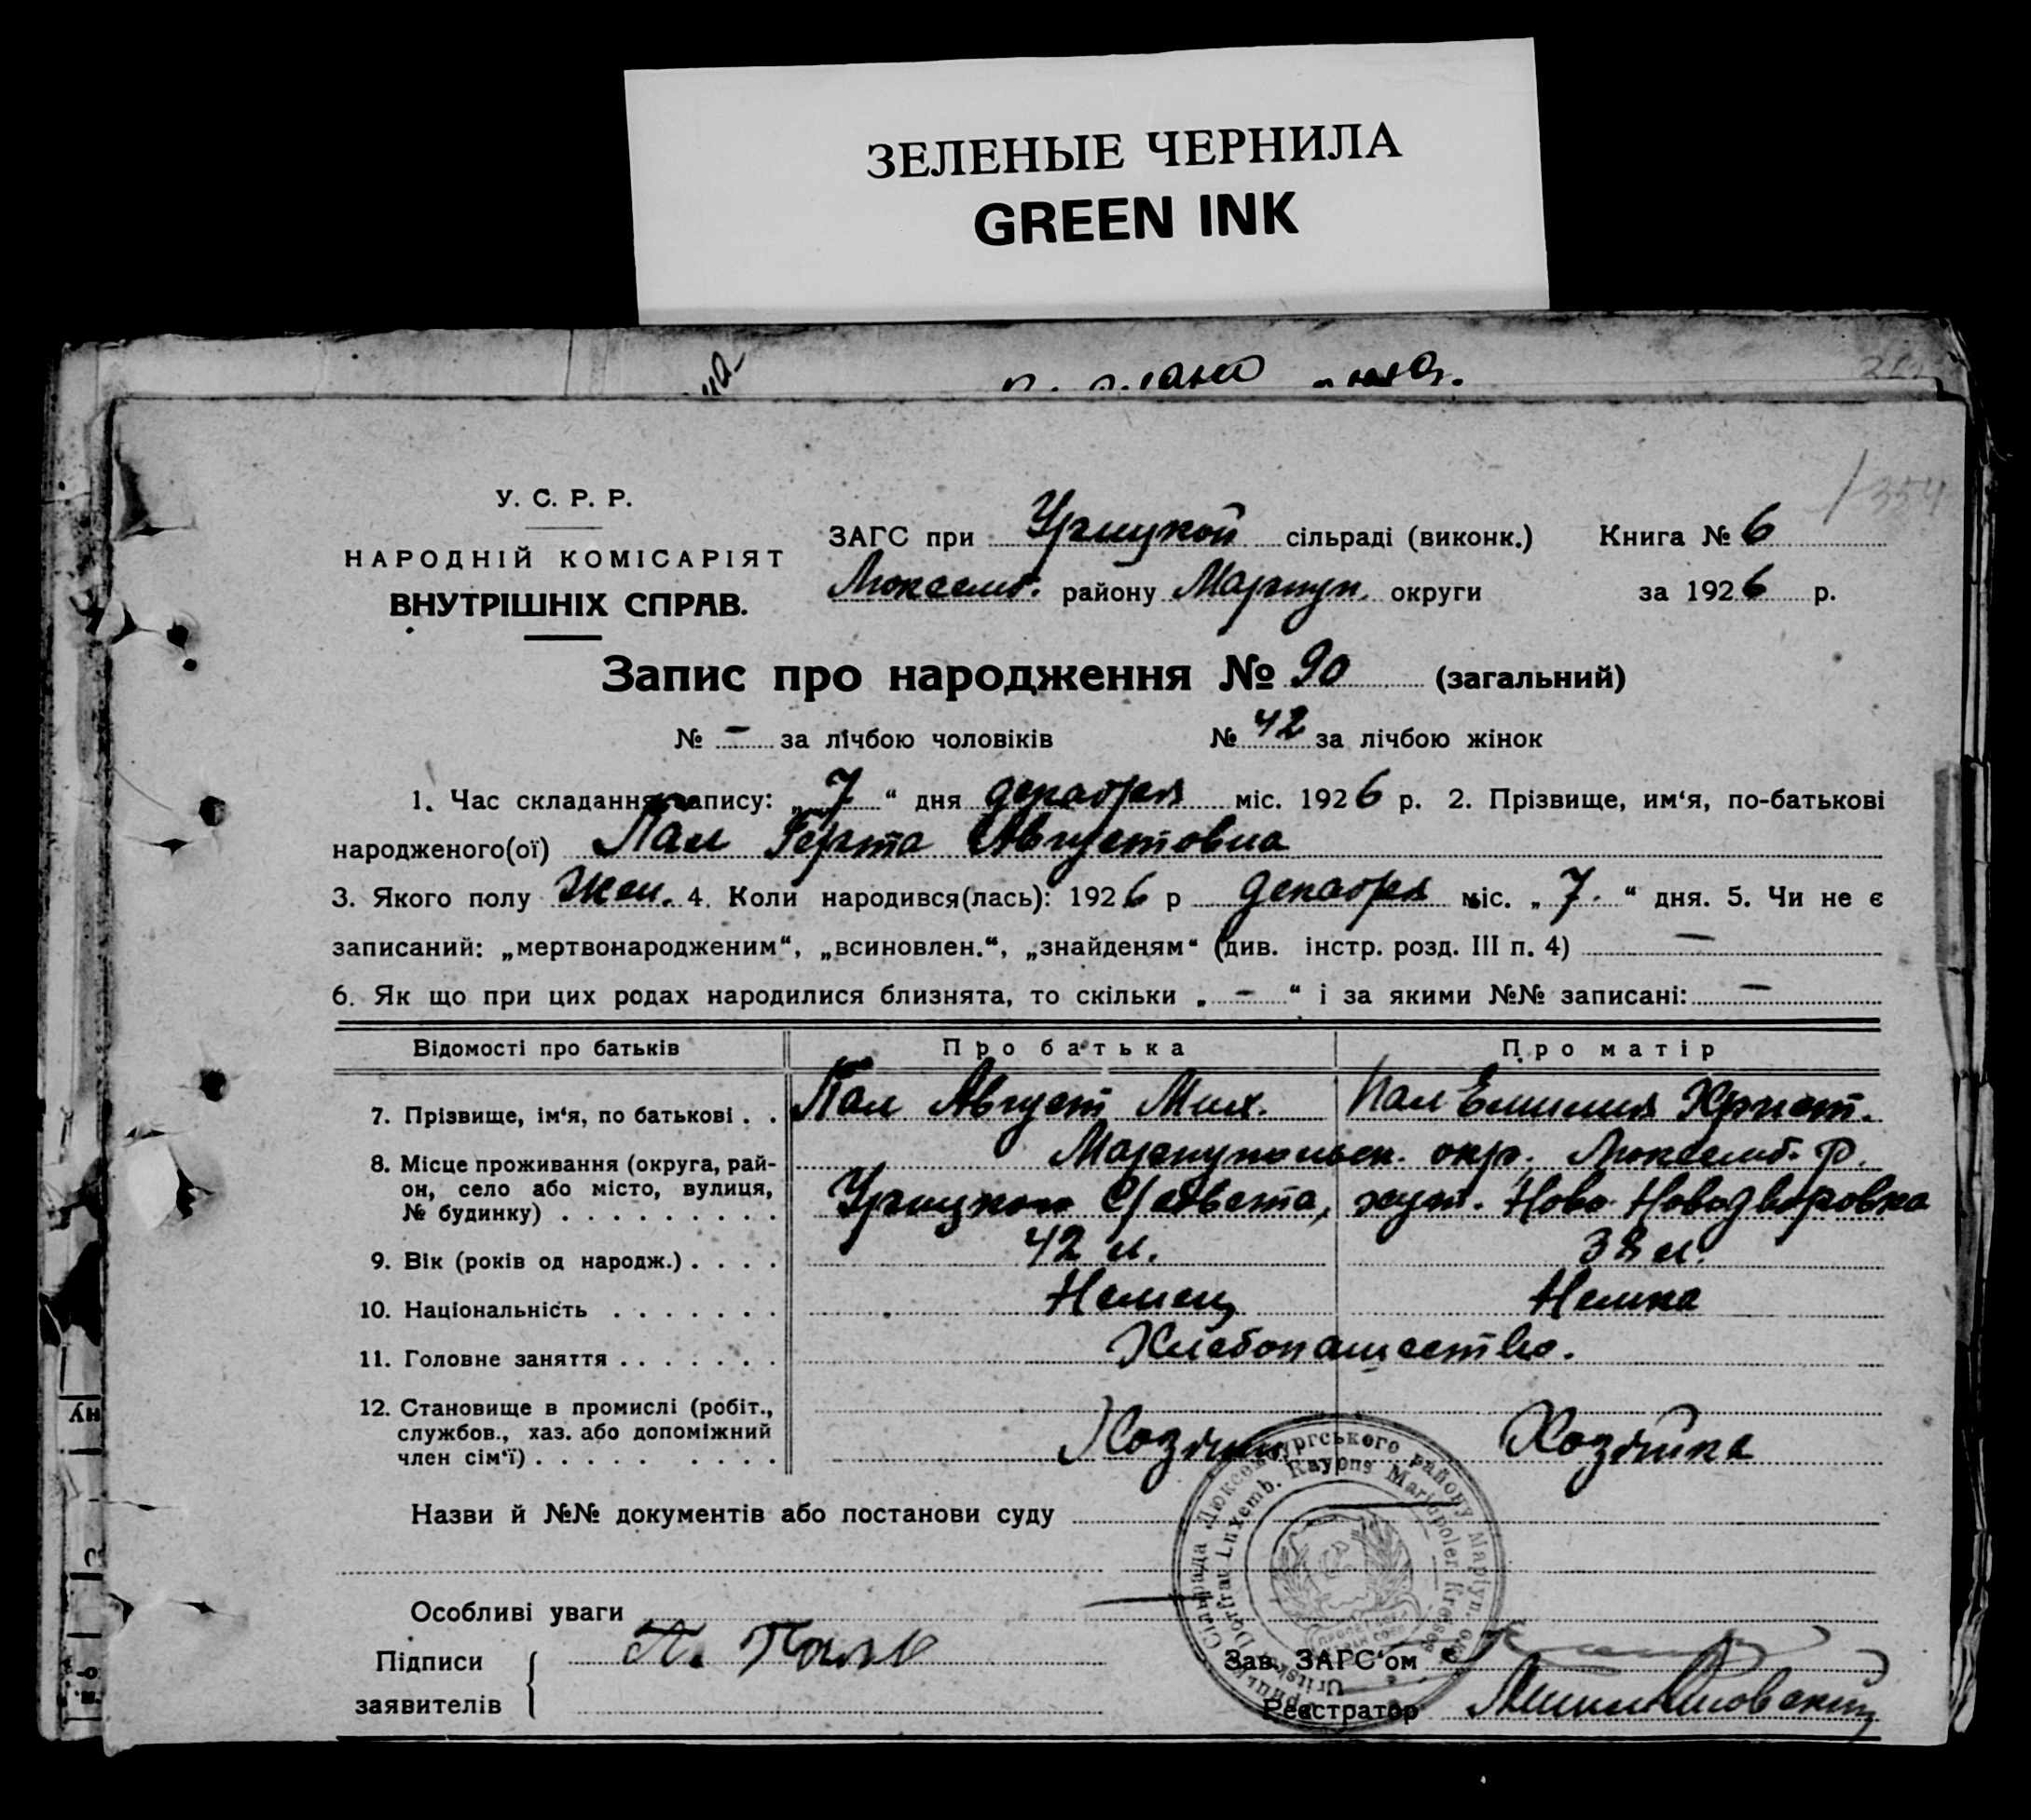 ЗЕЛЕНЫЕ ЧЕРНИЛА
GREEN INK
354
У. С. Р. Р.
НАРОДНІЙ КОМІСАРІЯТ
ВНУТРІШНІХ СПРАВ.
ЗАГС при Урицкой сільраді (виконк.) Книга № 6
Люксемб. району Мариуп. округи за 1926 р.
Запис про народження № 90 (загальний)
№ - за лічбою чоловіків № 42 за лічбою жінок
1. Час складання запису: „7“ дня декабря міс. 1926 р. 2. Прізвище, им‘я, по-батькові
народженого(ої) Пал Герта Августовна
3. Якого полу Жен. 4. Коли народився(лась): 1926 р декабря міс. „7.“ дня. 5. Чи не є
записаний: „мертвонародженим“, „всиновлен.“, „знайденям“ (див. інстр. розд. III п. 4) —
6. Як що при цих родах народилися близнята, то скільки „-“ і за якими №№ записані: —
Відомості про батьків Про батька Про матір
7. Прізвище, ім‘я, по батькові . . Пал Август Мих. Пал Емилия Христ.
8. Місце проживання (округа, рай- Мариупольск. окр. Люксемб. р.
он, село або місто, вулиця,
№ будинку) . . . . . . . . . Урицкого С/совета, хут. Ново Новодворовка
9. Вік (років од народж.) . . . . 42 л. 38 л.
10. Національність . . . . . . . Немец Немка
11. Головне заняття . . . . . . . Хлебопашество.
12. Становище в промислі (робіт.,
службов., хаз. або допоміжний
член сім‘ї) . . . . . . . . . Хозяин Хозяйка
Назви й №№ документів або постанови суду
Особливі уваги —
Підписи А. Паль
заявителів
Зав. ЗАГС‘ом
Реєстратор
Сільрада Люксембургського району Маріуп. окр.
Uritski Dorfrat Luxemb. Rayons Mariupoler Kreises